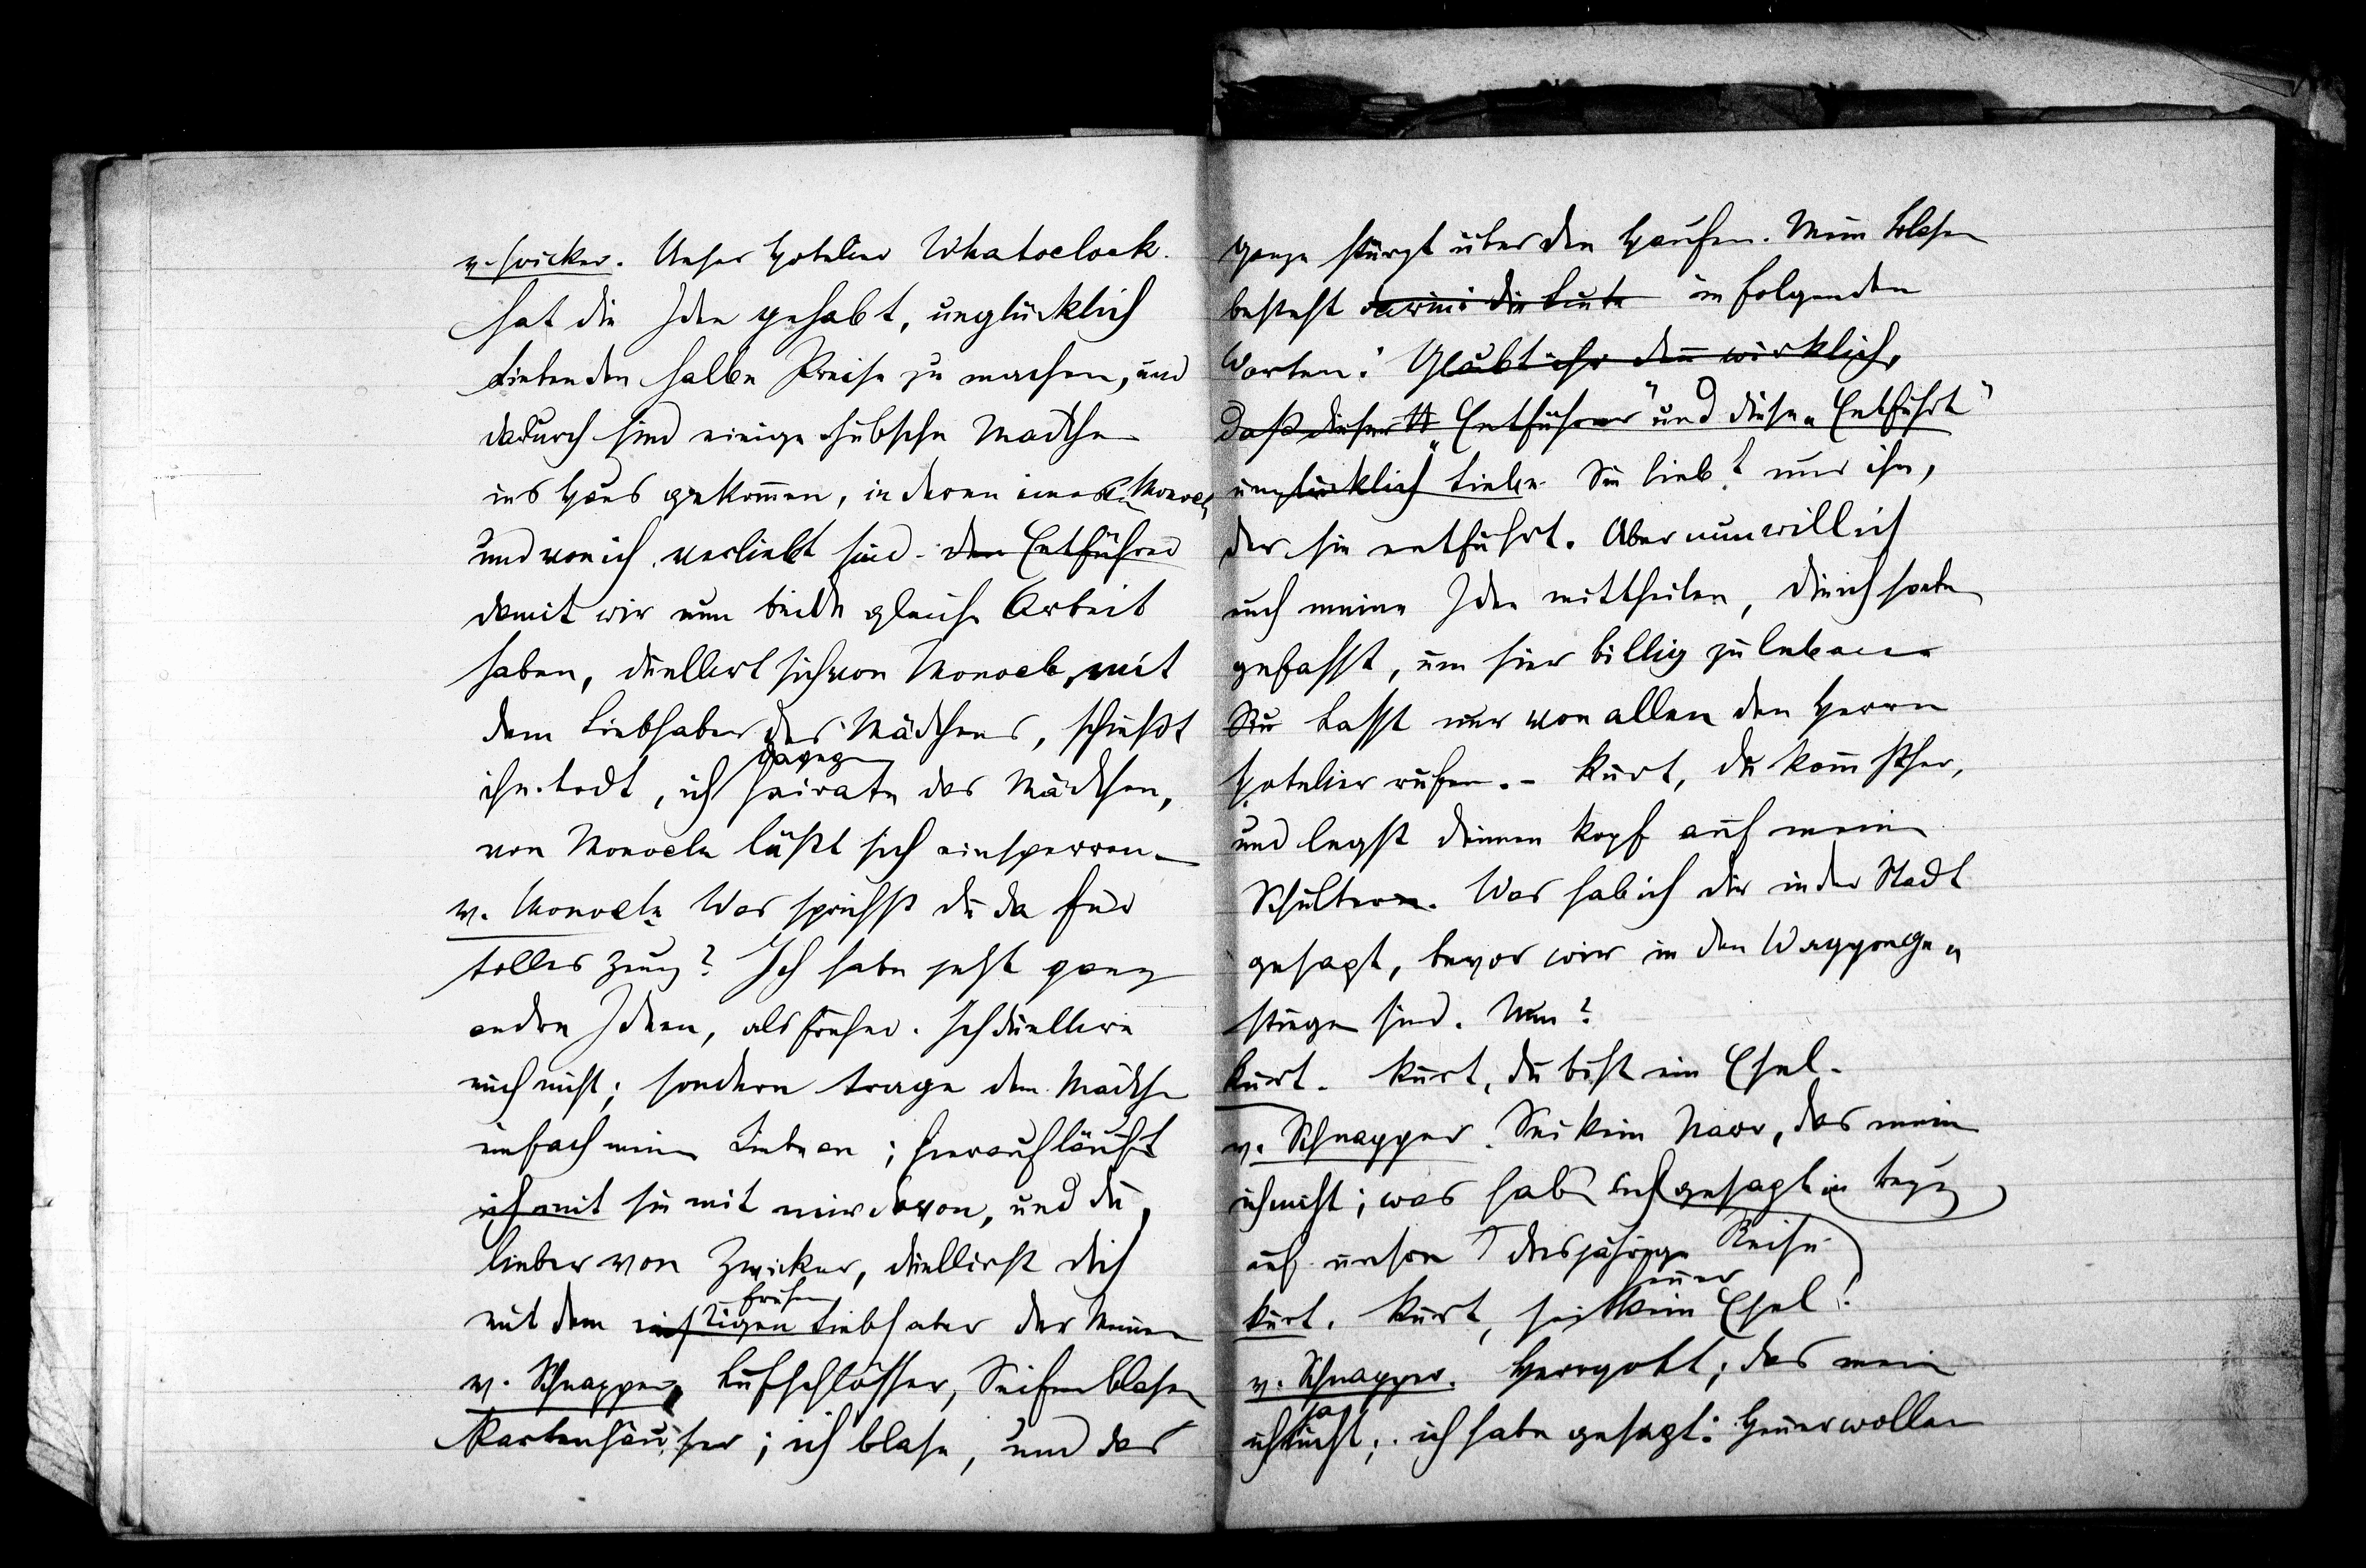 v. Zwicker. Unser Hotelier Whatoclock
hat die Idee gehabt, unglücklich
Liebenden halbe Preise zu machen, und
dadurch sind einige hübsche Mädchen
ins Haus gekommen, in deren eines v. Monocle
und von ich verliebt sind. den Entführer
damit wir nun beide gleiche Arbeit
haben, duellirt sich von Monocle, mit
dem Liebhaber des Mädchens, schießt
ihn todt, ich dagegen heirate das Mädchen,
von Monocle läßt sich einsperren.
v. Monocle Was sprichst du da für
tolles Zeug? Ich habe jetzt ganz
andre Ideen, als früher. Ich duellire
mich nicht; sondern trage dem Mädchen
einfach meine Liebe an; hierauf läuft
ich mit sie mit mir davon, und du,
lieber von Zwicker, duellirst dich
mit dem frühern Liebhaber der Meinen
v. Schnapper, Luftschlösser, Seifenblasen
Kartenhäuser; ich blase, und das
ganze stürzt über den Haufen. Mein Blasen
besteht darin: die Leute in folgenden
Worten: Glaubt ihr denn wirklich,
daß dieser „Entführer" und diese „Entführt"
unglücklich Liebe. Sie liebt nur ihn,
der sie entführt. Aber nun will ich
euch meine Idee mittheilen, die ich soeben
gefasst, um hier billig zu leben
Sie Lasst nur von allen den Herrn
Hotelier rufen. – Kurt, du kommst her,
und legst deinen Kopf auf meine
Schultern. Was hab ich dir in der Stadt
gesagt, bevor wir in den Waggon ge„
stiegen sind. Nun?
Kurt. Kurt, du bist ein Esel.
v. Schnapper. Sei kein Narr, das mein
ich nicht; was hab ich gesagt in bezug
auf unsere diesjährige Reise
Kurt. Kurt, sei heuer kein Esel!
v. Schnapper. Herrgott; das mein
ich ja nicht; ich habe gesagt: Heuer wollen